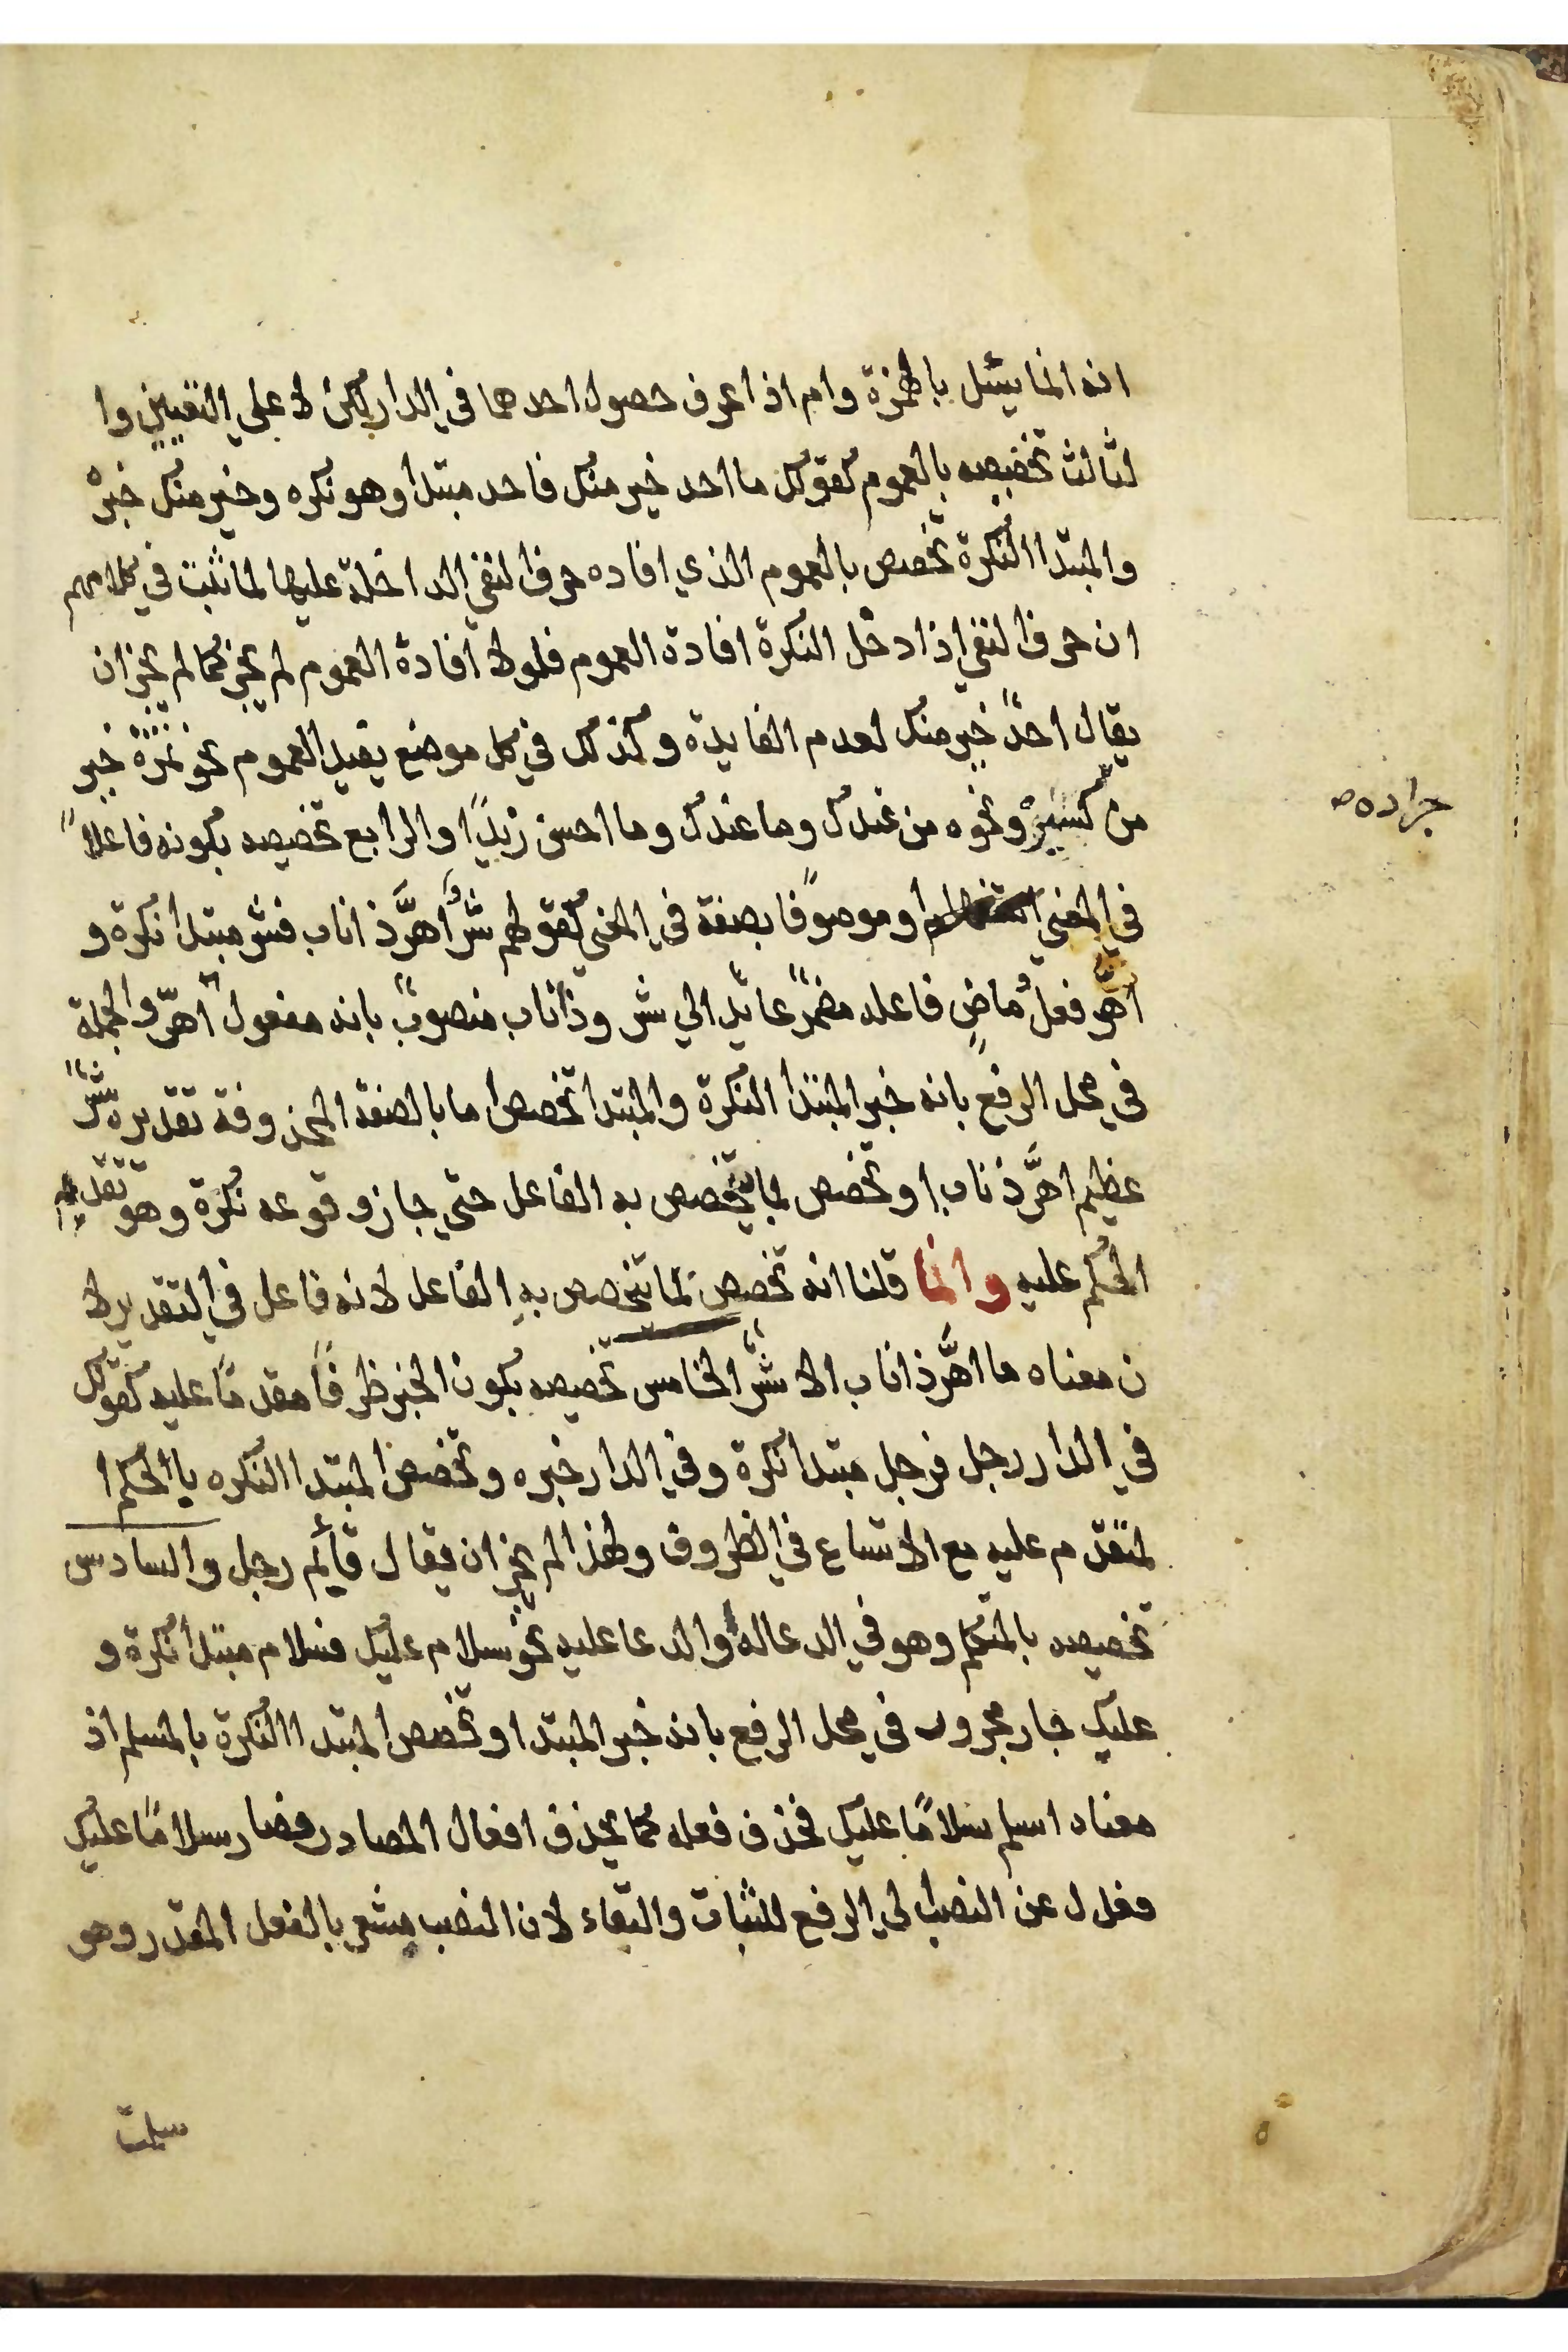 انه انما يسئل بالهمزة وام اذا عرف حصول احدهما في الدار لكن لا علي التعيين وا
لثالث تخصيصه بالعموم كقولك ما احد خير منك فاحد مبتدا وهو نكره وخير منك خبره
والمبتدا النكرة تخصص بالعموم الذي افاده حرف النفي الداخلة عليها لما ثبت في كلامهم
ان حرف النفي اذا دخل النكرة افادة العموم فلولا افادة العموم لم يجز كما لم يجز ان
يقال احدٌ خير منك لعدم الفايدة وكذلك في كل موضع يفيد العموم نحو تمرة خير
من ونحوه من عندك وما عندك وما احسن زيدًا والرابع تخصيصه بكونه فاعلاً
جراده
في المعني او موصوفًا بصفة في المعني كقولهم شرٌّ أهرَّ ذا ناب فشر مبتدا نكرة و
اهرّ فعلٌ ماضٍ فاعله مضمرٌ عائد الي شر وذا ناب منصوبٌ بانه مفعول اهرّ والجملة
في محل الرفع بانه خبر المبتدا النكرة والمبتدا تخصص اما بالصفة المحذوفة تقديره شرٌّ
عظيم اهرَّ ذ ناب او تخصص بما يتخصص به الفاعل حتي جاز وقوعه نكرة وهو تقديم
الحكم عليه وانما قلنا انه تخصص بما تتخصص بهِ الفاعل لانه فاعل في التقدير لا
ن معناه ما اهرَّ ذا ناب الا شرٌّ الخامس تخصيصه بكون الخبر ظرفًا مقدمًا عليه كقولك
في الدار رجل فرجل مبتدا نكرة وفي الدار خبره وتخصص المبتدا النكره باالحكم ا
لمتقدم عليه مع الاتساع في الظروف ولهذا لم يجز ان يقال قايم رجل والسادس
تخصيصه بالمتكلم وهو في الدعا له والدعا عليه نحو سلام عليك فسلام مبتدا نكرة و
عليك جار مجرور في محل الرفع بانه خبر المبتدا وتخصص المبتدا النكرة بالمسلم اذ
معناه اسلم سلامًا عليك فحذف فعله كما يحذف افعال المصادر فصار سلامًا عليك
فعدل عن النصب الي الرفع للثبات والبقاء لان النصب يشعر بالفعل المقدر وهو
سلمت